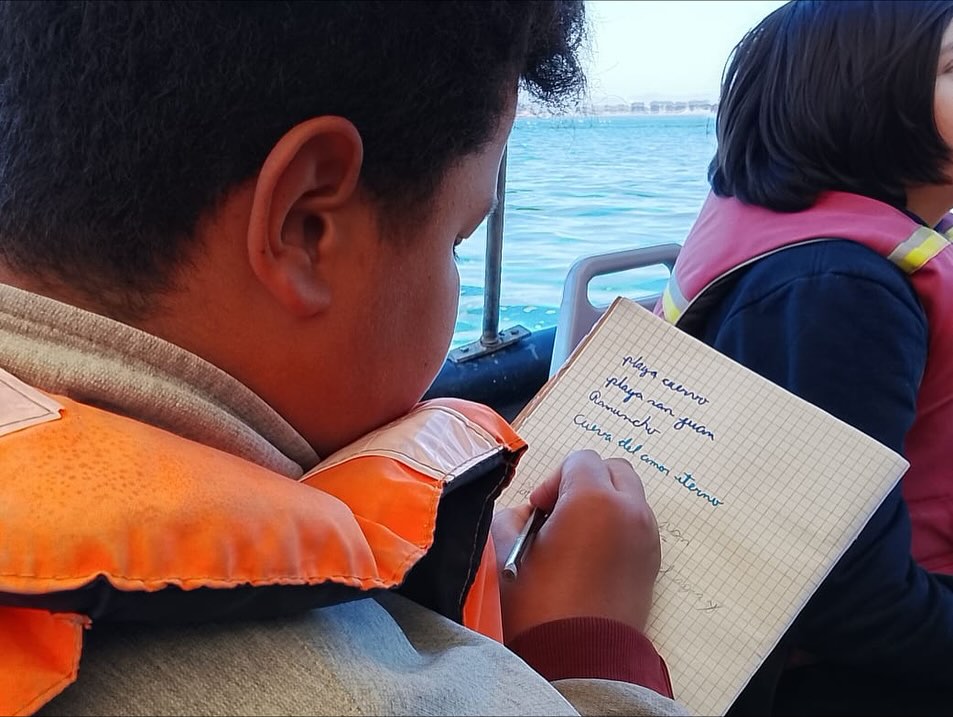 playa cuervo
playa san juan
Ramuncho
Cueva del amor .terno